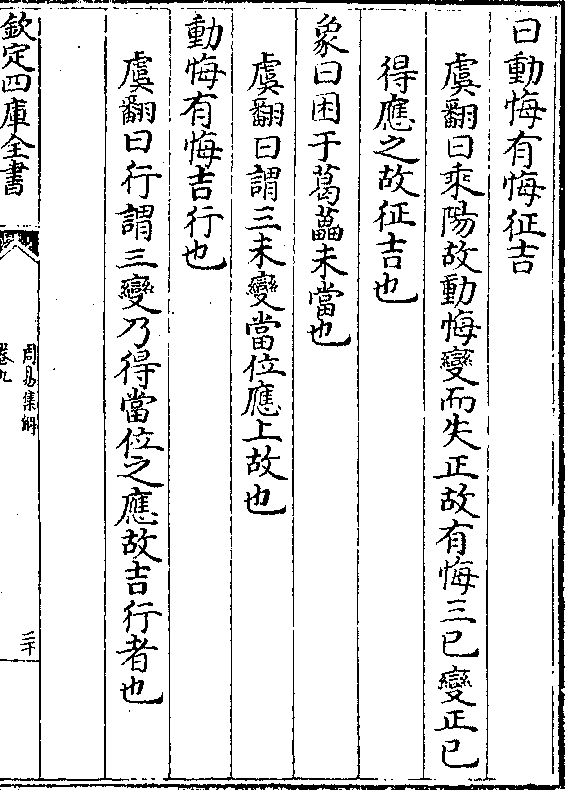 曰動悔有悔征吉
虞翻曰乘陽故動悔變而失正故有悔三已變正已
得應之故征吉也
象曰困于葛藟未當也
虞翻曰謂三未變當位應上故也
動悔有悔吉行也
虞翻曰行謂三變乃得當位之應故吉行者也
欽定四庫全書
周易集解
卷九
三十